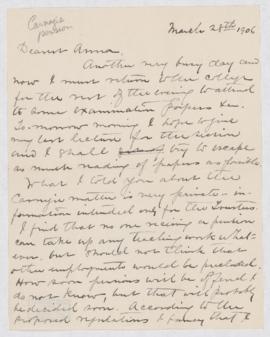 Carnegie
pension
March 28th 1906
Dearest Anna,
Another very busy day and
now I must return to the college
for the rest of the evening to attend
to some examination papers &c.
To-morrow morning I hope to give
my last lecture for the session
and I shall try to escape
as much reading of papers as possible.
What I told you about the
Carnegie matter is very private – in-
formation intended only for the Trustees.
I find that no one receiving a pension
can take up any teaching work what-
ever, but should not think that
other employments would be precluded.
How soon pensions will be offered I
do not know, but that will probably
be decided soon. According to the
proposed regulations I fancy that I